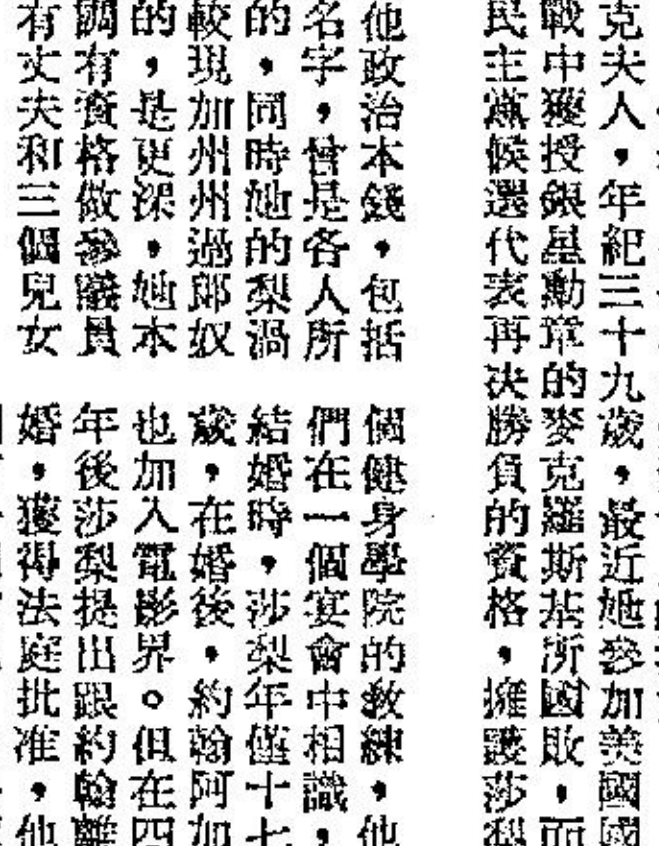 克夫人，年紀三十九歲，最近她參加美國國
戰中獲授銀星勳章的麥克羅斯基所國敗，而
民主黨候選代表再決勝負的資格，擁護莎梨
他政治本錢，包括
名字，曾是各人所
的，同時她的梨渦
較現加州州過郎奴
的，是更深，她本
有資格做參議員
有丈夫和三個兒女
個健身學院的教練，他
們在一個宴會中相識，
結婚時，莎梨年僅十七
歲，在婚後，約翰阿加
也加入電影界。但在四
年後莎梨提出跟約翰離
婚，獲得法庭批准，他